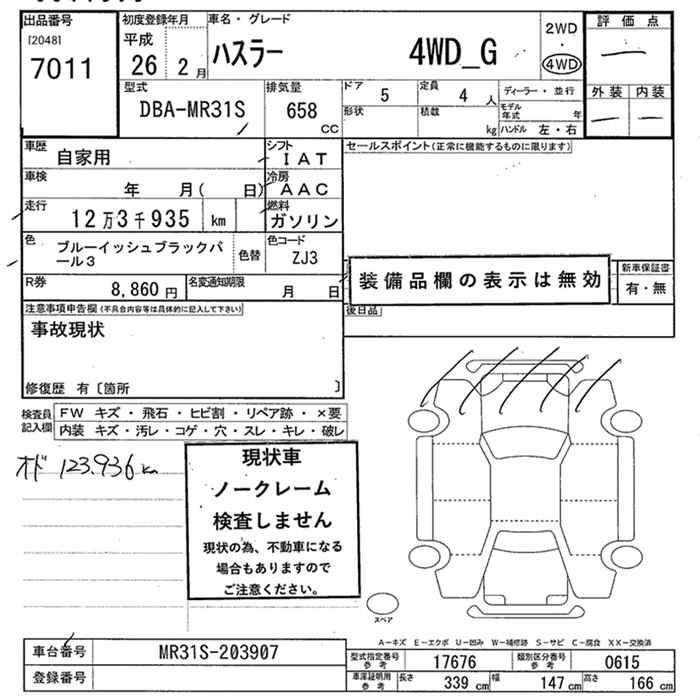 出品番号
[2048]
7011
初度登録年月
平成
26 2 月
車名・グレード
ハスラー 4WD_G
2WD
・
4WD
評価点
外装 内装
型式
DBA-MR31S
排気量
658
cc
ドア
5
定員
4 人
形状
積載
kg
ディーラー・並行
モデル年式 年
ハンドル 左・右
車歴
自家用
シフト
IAT
車検
年 月( 日)
冷房
AAC
走行
12万3千935 km
燃料
ガソリン
色
ブルーイッシュブラックパール3
色替
色コード
ZJ3
R券
8,860 円
名変通知期限
月 日
セールスポイント(正常に機能するものに限ります)
装備品欄の表示は無効
新車保証書
有・無
後日品
注意事項申告欄(不具合内容等は具体的に記入して下さい)
事故現状
修復歴 有〔箇所 〕
検査員記入欄
FW キズ・飛石・ヒビ割・リペア跡・×要
内装 キズ・汚レ・コゲ・穴・スレ・キレ・破レ
オド 123.936 km
現状車
ノークレーム
検査しません
現状の為、不動車になる
場合もありますので
ご注意ください。
スペア
A-キズ E-エクボ U-凹み W-補修跡 S-サビ C-腐食 XX-交換済
車台番号
MR31S-203907
登録番号
型式指定番号
参考
17676
類別区分番号
参考
0615
車庫証明用
参考
長さ 339 cm
幅 147 cm
高さ 166 cm